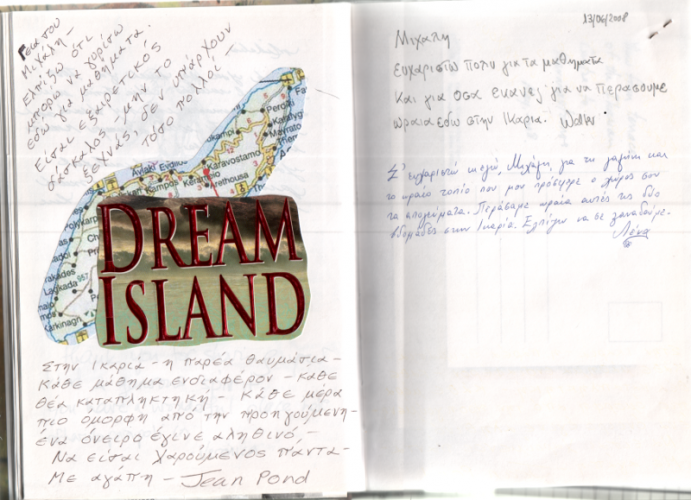 Γεια σου
Μιχάλη -
Ελπίζω ότι
μπορώ να γυρίσω
εδώ για μαθήματα.
Είσαι εξαιρετικός
δάσκαλος - μην το
ξεχνάς, δεν υπάρχουν
τόσο πολλοί -
Perdiki
Karavostamo
Avlaki
Evdilos
Kampos
Keramio
Arethousa
DREAM
ISLAND
Lagkada
957
Karkinagri
Στην Ικαριά - η παρέα θαυμάσια -
κάθε μάθημα ενδιαφέρον - κάθε
θέα καταπληκτική - κάθε μέρα
πιο όμορφη από την προηγούμενη -
ένα όνειρο έγινε αληθινό -
Να είσαι χαρούμενος πάντα -
Με αγάπη - Jean Pond
13/06/2008
Μιχαλη
ευχαριστω πολυ για τα μαθηματα
και για οσα εκανες για να περασουμε
ωραια εδω στην Ικαρια.
Σ' ευχαριστώ πολύ, Μιχάλη, για τη γαλήνη και
το ωραίο τοπίο που μου πρόσφερε ο χώρος σου
τα απογεύματα. Περάσαμε ωραία αυτές τις δύο
εβδομάδες στην Ικαρία. Ελπίζω να σε ξαναδούμε.